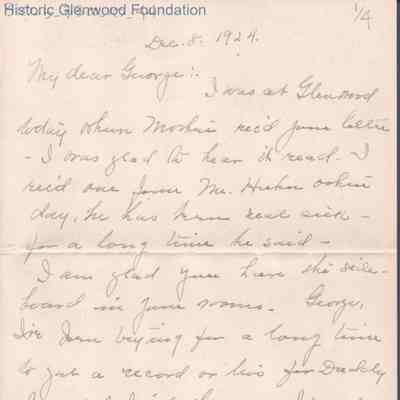 Historic Glenwood Foundation
1/4
Dec. 8. 1924.
My dear George:
I was at Glenwood
today when Mother rec'd your letter
- I was glad to hear it read. I
rec'd one from Mr.
day, he has been real sick -
for a long time he said -
I am glad you have the side-
board in your rooms. George,
I've been trying for a long time
to get a record or two for Daddy